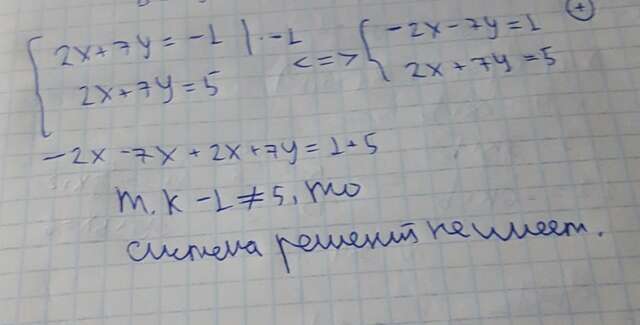 2x+7y = -1 | · -1 <=> -2x-7y=1 (+)
2x+7y=5 2x+7y=5
-2x -7x + 2x+7y= 1+5
т.к -1≠5, то
система решений не имеет.